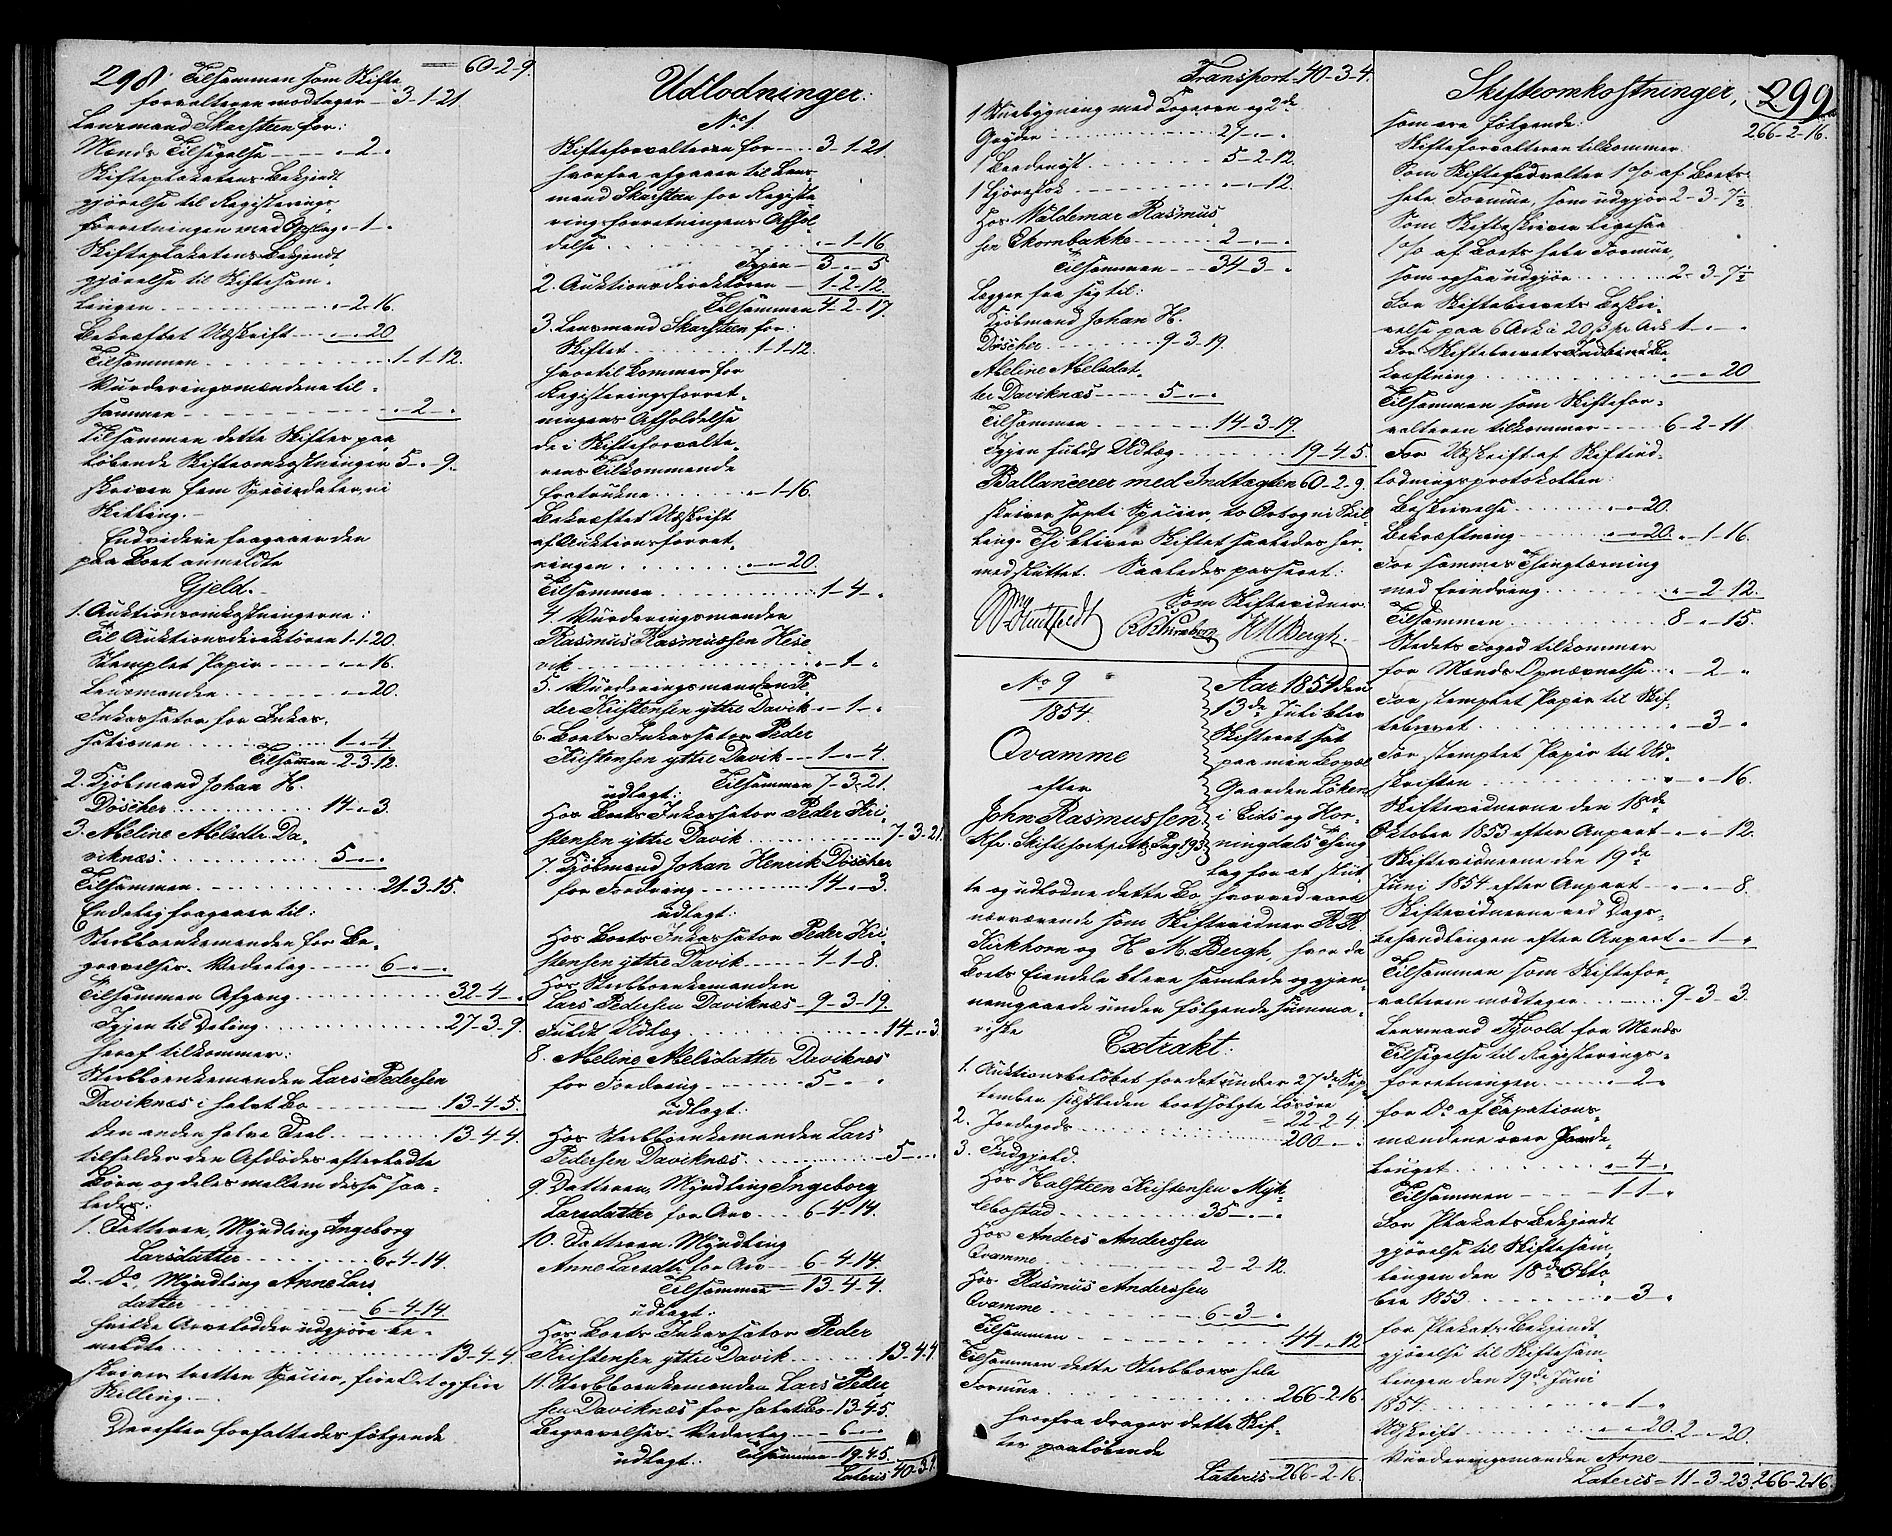 298. Tilsammen som Skifte- 60-2-9.
forvalteren modtager - 3-1-21
Lensmand Skarsteen for:
Mænds Tilsigelse - „-2-„
Skifteplakatens Bekjendt-
gjørelse til Registerings-
forretningen med Opslag „-1-„
Skifteplakatens Bekjendt-
gjørelse til Skiftesam-
lingen „-2-16.
Bekræftet Udskrift „-„-20
Tilsammen 1-1-12.
Vurderingsmændene til-
sammen „-2-„
Tilsammen dette Skiftes paa-
løbende Skifteomkostninger 5-„-9.
skriver fem Speciedaler, ni
Skilling.-
Endvidere fragaaer den
paa Boet anmeldte
Gjeld.-
1. Auktionsomkostningerne:
Til Auktionsdirektøren 1-1-20.
Stemplet Papir „-„-16.
Lensmanden „-„-20.
Inkassator for Inkas-
sationen 1-„-4
Tilsammen 2-3-12.
2. Kjøbmand Johan H.
Döscher 14-„-3.
3. Meline Melsdtr. Da-
viknæs 5-„-„
Tilsammen 21-3-15.
Endelig fragaaer til:
Sterbboenkemanden for Be-
gravelses-Vederlag 6-„-„
Tilsammen Afgang 32-4-„
Igjen til Deling 27-3-9.
heraf tilkommer:
Sterbboenkemanden Lars Pedersen
Daviknæs i halvt Bo 13-4-5.
den anden halve Deel 13-4-4.
tilfalder den Afdødes efterladte
Børn og deles mellem disse saa-
ledes:
1. Datteren, Myndling Ingeborg
Larsdatter 6-4-14.
2. Do. Myndling Anne Lars-
datter 6-4-14
hvilke Arvelodder udgjøre be-
meldte 13-4-4
skriver tretten Specier, fire Ort og fire
Skilling.-
Derefter forfattedes følgende
Udlodninger:
No 1.
Skifteforvalteren for 3-1-21.
hvorfra afgaaer til Lens-
mand Skarsteen for Registe-
ringsforretningens Afhol-
delse „-1-16
Igjen 3-„-5
2. Auktionsdirektøren 1-2-12.
Tilsammen 4-2-17.
3. Lensmand Skarsteen for:
Skiftet 1-1-12.
hvortil kommer for
Registeringsforret-
ningens Afholdelse
de i Skifteforvalte-
rens Tilkommende
fratrukne „-1-16.
Bekræftet Udskrift
af Auktionsforret-
ningen „-„-20.
Tilsammen 1-4-„
4. Vurderingsmanden
Rasmus Rasmussen Hese-
vik „-1-„
5. Vurderingsmanden Pe-
der Kristensen yttre Davik „-1-„
6. Boets Inkassator Peder
Kristensen yttre Davik 1-„-4.
Tilsammen 7-3-21.
udlagt:
Hos Boets Inkassator Peder Kri-
stensen yttre Davik 7-3-21
7. Kjøbmand Johan Henrik Döscher
for Fordring 14-„-3.
udlagt:
Hos Boets Inkassator Peder Kri-
stensen yttre Davik 4-1-8.
Hos Sterbboenkemanden
Lars Pedersen Daviknæs 9-3-19.
Fuldt Udlæg 14-„-3
8. Meline Melsdatter Daviknæs
for Fordring 5-„-„
udlagt:
Hos Sterbboenkemanden Lars
Pedersen Daviknæs 5-„-„
9. Datteren, Myndling Ingeborg
Larsdatter for Arv 6-4-14.
10. Datteren Myndling
Anne Larsdtr for Arv 6-4-14.
Tilsammen 13-4-4.
udlagt:
Hos Boets Inkassator Peder
Kristensen yttre Davik 13-4-4.
11. Sterbboenkemanden Lars Peder-
sen Daviknæs for halvt Bo 13-4-5.
Begravelses-Vederlag 6-„-„
udlagt: Tilsammen 19-4-5.
Lateris 40-3-4.
Transport 40-3-4.
1 Stuebygning med Kogeovn og 2de
Gryder 27-„-„
1 5-2-12.
1 „-„-12.
Hos Waldemar Rasmus-
sen Ekornbakke 2-„-„
Tilsammen 34-3-„
Lægger fra sig til:
Kjøbmand Johan H.
Döscher 9-3-19.
Meline Melsdat-
ter Daviknæs 5-„-„
Tilsammen 14-3-19.
Igjen fuldt Udlæg 19-4-5.
Ballancerer med Indtægten 60-2-9.
skriver sexti Specier, to Ort og ni Skil-
ling. Thi bliver Skiftet saaledes her-
med sluttet. Saaledes passeret:
Som Skiftevidner
H M Bergh.
No 9
1854.
Qvamme
efter
John Rasmussen
Kfr. Skifteforh.prtk Pag. 193
Aar 1854 den
13de Juli blev
Skifteret sat
paa min Bopæl
Gaarden Löken
i Eids og Hor-
ningdals Thing-
lag for at slut-
te og udlodne dette Bo hvorved vare
nærværende som Skiftevidner R. R.
Kirkhorn og H. M. Bergh, hvor da
Boets Eiendele bleve samlede og gjen-
nemgaaede under følgende summa-
riske
Extrakt:
1. Auktionsbeløbet for det under 27de Sep-
tember sidstleden bortsolgte Løsøre
= 22-2-4.
2. Jordegods 200-„-„
3. Indgjeld.
Hos Halsteen Kristensen Myk-
lebostad 35-„-„
Hos Anders Anderssen
Qvamme 2-2-12.
Hos Rasmus Anderssen
Qvamme 6-3-„
Tilsammen 44-„-12
Tilsammen dette Sterbboes hele
Formue 266-2-16.
hvorfra drages dette Skif-
tes paaløbende
Lateris 266-2-16.
Skifteomkostninger, 299.
som ere følgende: 266-2-16.
Skifteforvalteren tilkommer:
Som Skifteforvalter 1 % af Boets
hele Formue, som udgjør 2-3-7½
Som Skifteskriver ligesaa
1 % af Boets hele Formue,
som ogsaa udgjør 2-3-7½
For Skiftebrevets Beskri-
velse paa 6 Ark à 20 ß pr Ark 1-„-„
For Skiftebrevets Be-
kræftning „-„-20
Tilsammen som Skiftefor-
valteren tilkommer 6-2-11.
For Udskrift af Skifteud-
lodningsprotokollen:
Beskrivelse „-„-20.
Bekræftning „-„-20. „-1-16.
For sammes Thinglæsning
med Erindring „-2-12.
Tilsammen 8-„-15.
Stedets Foged tilkommer
for Mænds Opnævnelse „-2-„
For stemplet Papir til Skif-
tebrevet „-3-„
For stemplet Papir til Ud-
skriften „-„-16.
Skiftevidnerne den 18de
Oktober 1853 efter Anpart „-„-12.
Skiftevidnerne den 19de
Juni 1854 efter Anpart „-„-8.
Skiftevidnerne ved Dags-
behandlingen efter Anpart „-1-„
Tilsammen som Skiftefor-
valteren modtager 9-3-3.
Lensmand Fyvold for Mænds
Tilsigelse til Registerings-
forretningen „-2-„
for Do af Taxations-
mændene over Jorde-
bruget „-4-„
Tilsammen 1-1-„
For Plakats Bekjendt-
gjørelse til Skiftesam-
lingen den 18de Okto-
ber 1853. „-3-„
for Plakats Bekjendt-
gjørelse til Skiftesam-
lingen den 19de Juni
1854 „-1-„
Udskrift „-„-20. 2-„-20.
Vurderingsmanden Arne
Lateris = 11-3-23. 266-2-16.